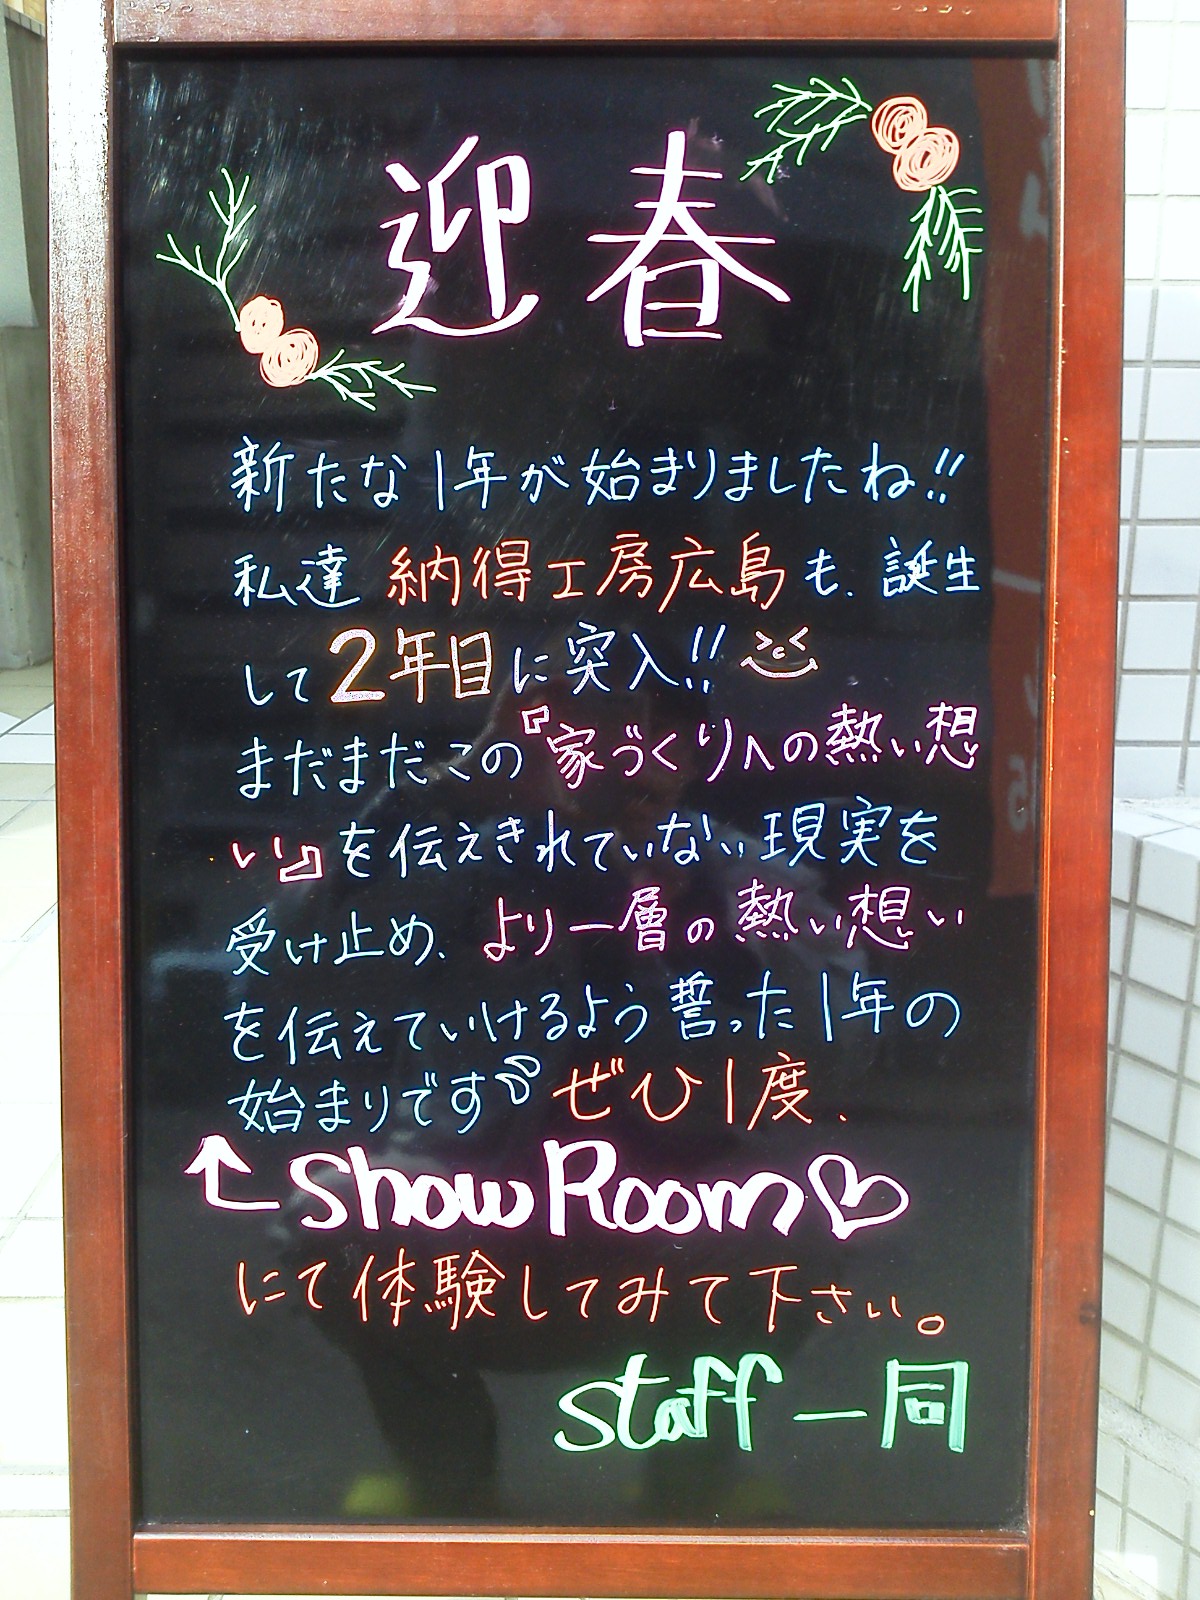 迎春
新たな1年が始まりましたね!!
私達 納得工房広島も、誕生
して2年目に突入!!
まだまだこの『家づくりへの熱い想
い』を伝えきれていない現実を
受け止め、より一層の熱い想い
を伝えていけるよう誓った1年の
始まりです ぜひ1度、
↑ Show Room♡
にて体験してみて下さい。
staff一同